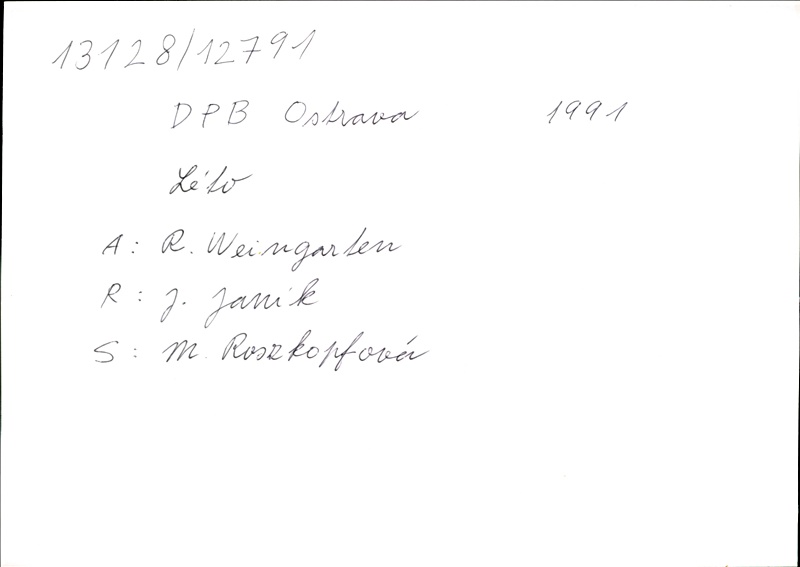 13128/12791
DPB Ostrava 1991
Léto
A: R. Weingarten
R: J. Janik
S: M. Roszkopfová